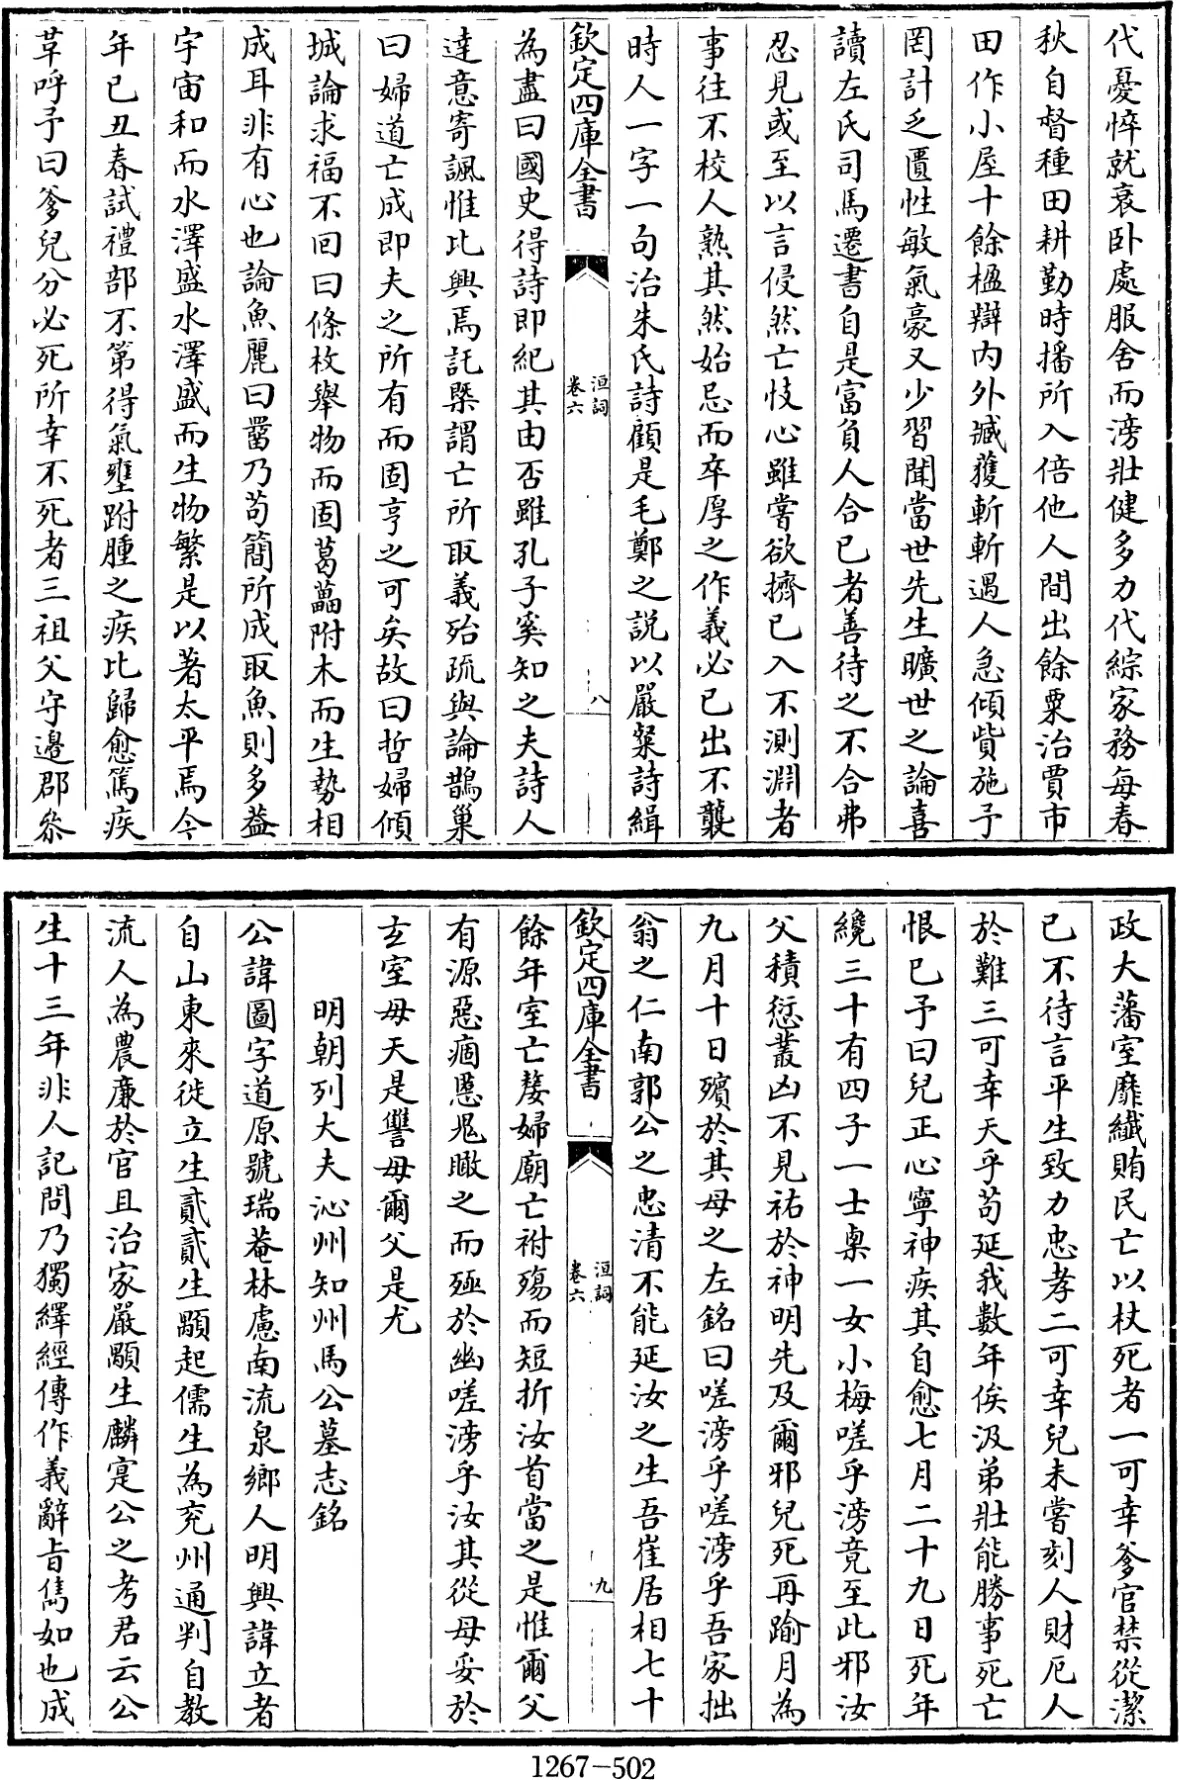 代憂悴就衰卧處服舍而滂壯健多力代綜家務每春
秋自督種田耕勤時播所入倍他人間出餘粟治賈市
田作小屋十餘楹辯内外臧獲斬斬遇人急傾貲施予
罔計乏匱性敏氣豪又少習聞當世先生曠世之論喜
讀左氏司馬遷書自是富負人合已者善待之不合弗
忍見或至以言侵然亡忮心雖嘗欲擠已入不測淵者
事往不校人熟其然始忌而卒厚之作義必已出不襲
時人一字一句治朱氏詩顧是毛鄭之説以嚴粲詩緝
欽定四庫全書
洹詞
卷六
八
為盡曰國史得詩即紀其由否雖孔子奚知之夫詩人
達意寄諷惟比興焉託槩謂亡所取義殆疏與論鵲巢
曰婦道亡成即夫之所有而固亨之可矣故曰哲婦傾
城論求福不回曰條枚舉物而固葛藟附木而生勢相
成耳非有心也論魚麗曰罶乃苟簡所成取魚則多葢
宇宙和而水澤盛水澤盛而生物繁是以著太平焉今
年已丑春試禮部不第得氣壅跗腫之疾比歸愈篤疾
草呼予曰爹兒分必死所幸不死者三祖父守邊郡叅
政大藩室靡纎賄民亡以杖死者一可幸爹官禁從潔
已不待言平生致力忠孝二可幸兒未嘗刻人財厄人
於難三可幸天乎苟延我數年俟汲弟壯能勝事死亡
恨巳予曰兒正心寧神疾其自愈七月二十九日死年
纔三十有四子一士㮚一女小梅嗟乎滂竟至此邪汝
父積愆叢凶不見祐於神明先及爾邪兒死再踰月為
九月十日殯於其母之左銘曰嗟滂乎嗟滂乎吾家拙
翁之仁南郭公之忠清不能延汝之生吾崔居相七十
欽定四庫全書
洹詞
卷六
九
餘年室亡嫠婦廟亡祔殤而短折汝首當之是惟爾父
有源惡痼慝鬼瞰之而殛於幽嗟滂乎汝其從母妥於
玄室毋天是讐毋爾父是尤
明朝列大夫沁州知州馬公墓志銘
公諱圖字道原號瑞菴林慮南流泉鄉人明興諱立者
自山東來徙立生貳貳生顒起儒生為兖州通判自教
流人為農廉於官且治家嚴顒生麟寔公之考君云公
生十三年非人記問乃獨繹經傳作義辭旨雋如也成
1267-502